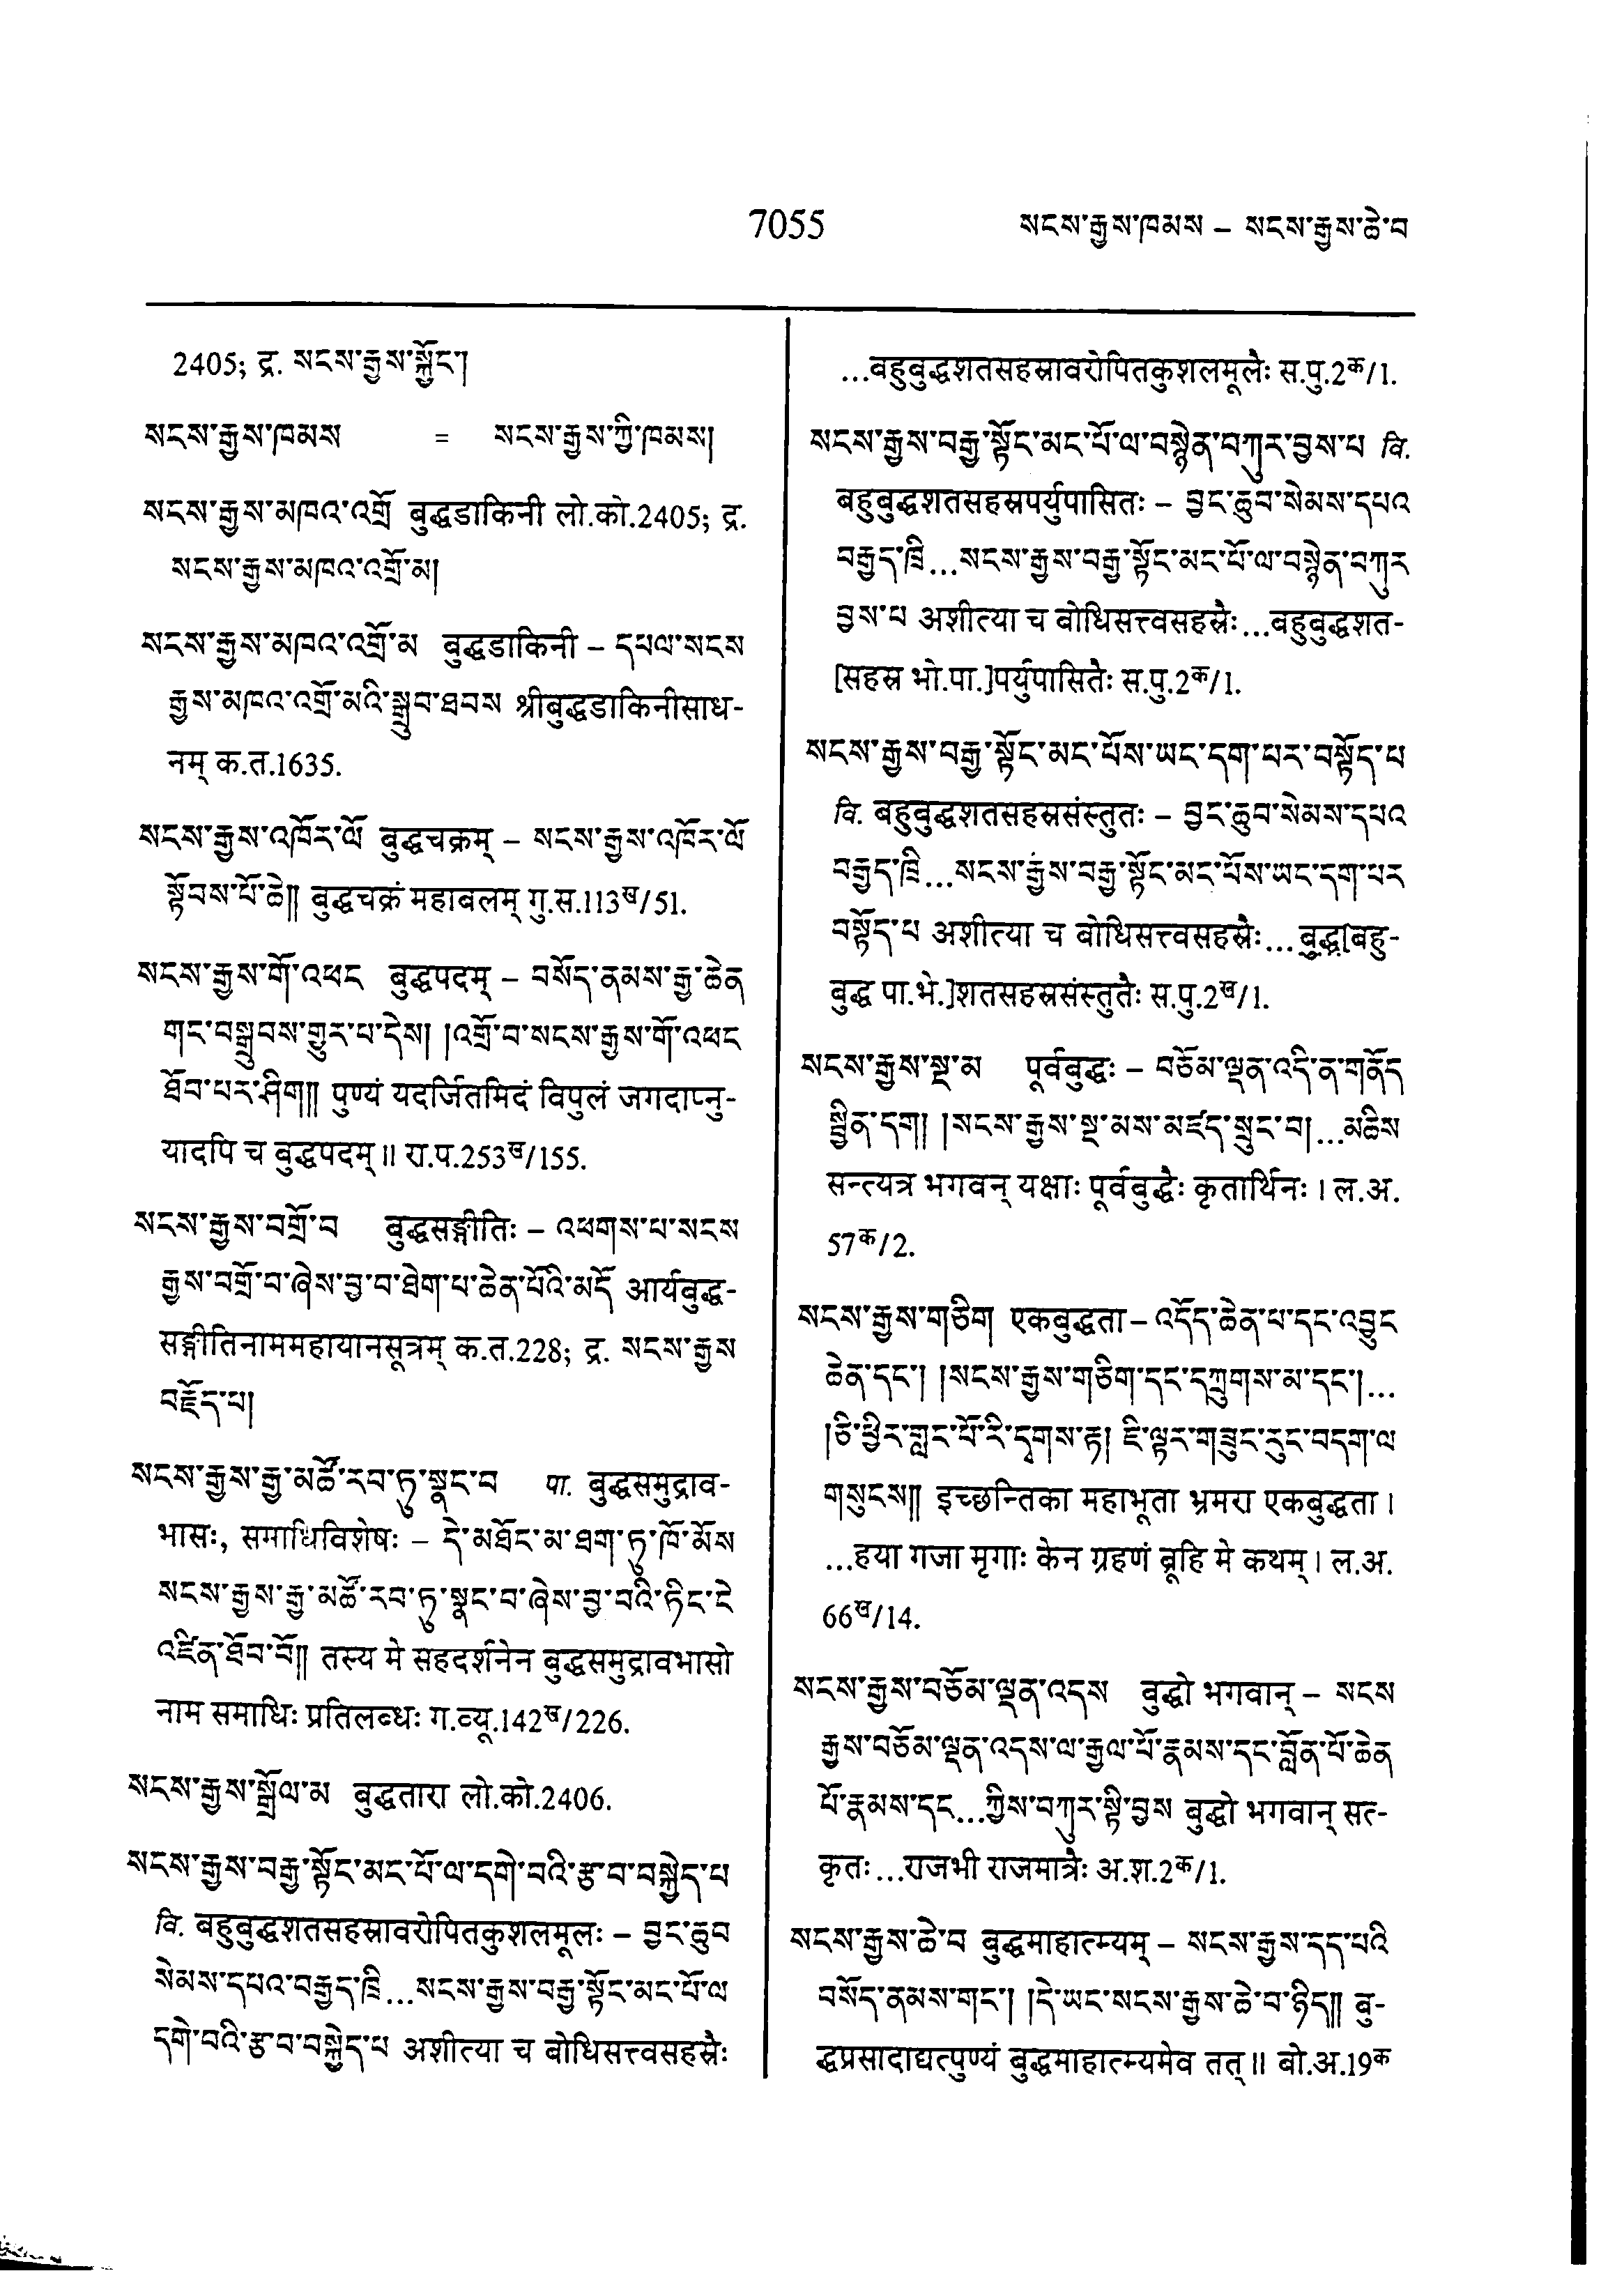 7055
སངས་རྒྱས་ཁམས – སངས་རྒྱས་ཆེ་བ
2405; द्र. སངས་རྒྱས་སྐྱོང་།
སངས་རྒྱས་ཁམས = སངས་རྒྱས་ཀྱི་ཁམས།
སངས་རྒྱས་མཁའ་འགྲོ बुद्धडाकिनी लो.को.2405; द्र.
སངས་རྒྱས་མཁའ་འགྲོ་མ།
སངས་རྒྱས་མཁའ་འགྲོ་མ बुद्धडाकिनी – དཔལ་སངས
རྒྱས་མཁའ་འགྲོ་མའི་སྒྲུབ་ཐབས श्रीबुद्धडाकिनीसाध-
नम् क.त.1635.
སངས་རྒྱས་འཁོར་ལོ बुद्धचक्रम् – སངས་རྒྱས་འཁོར་ལོ
སྟོབས་པོ་ཆེ།། बुद्धचक्रं महाबलम् गु.स.113ख/51.
སངས་རྒྱས་གོ་འཕང बुद्धपदम् – བསོད་ནམས་རྒྱ་ཆེན
གང་བསྒྲུབས་གྱུར་པ་དེས། །འགྲོ་བ་སངས་རྒྱས་གོ་འཕང
ཐོབ་པར་ཤིག།། पुण्यं यदर्जितमिदं विपुलं जगदाप्नु-
यादपि च बुद्धपदम् ॥ रा.प.253ख/155.
སངས་རྒྱས་བགྲོ་བ बुद्धसङ्गीतिः – འཕགས་པ་སངས
རྒྱས་བགྲོ་བ་ཞེས་བྱ་བ་ཐེག་པ་ཆེན་པོའི་མདོ आर्यबुद्ध-
सङ्गीतिनाममहायानसूत्रम् क.त.228; द्र. སངས་རྒྱས
བརྗོད་པ།
སངས་རྒྱས་རྒྱ་མཚོ་རབ་ཏུ་སྣང་བ पा. बुद्धसमुद्राव-
भासः, समाधिविशेषः – དེ་མཐོང་མ་ཐག་ཏུ་ཁོ་མོས
སངས་རྒྱས་རྒྱ་མཚོ་རབ་ཏུ་སྣང་བ་ཞེས་བྱ་བའི་ཏིང་ངེ
འཛིན་ཐོབ་བོ།། तस्य मे सहदर्शनेन बुद्धसमुद्रावभासो
नाम समाधिः प्रतिलब्धः ग.व्यू.142ख/226.
སངས་རྒྱས་སྒྲོལ་མ बुद्धतारा लो.को.2406.
སངས་རྒྱས་བརྒྱ་སྟོང་མང་པོ་ལ་དགེ་བའི་རྩ་བ་བསྐྱེད་པ
वि. बहुबुद्धशतसहस्रावरोपितकुशलमूलः – བྱང་ཆུབ
སེམས་དཔའ་བརྒྱད་ཁྲི...སངས་རྒྱས་བརྒྱ་སྟོང་མང་པོ་ལ
དགེ་བའི་རྩ་བ་བསྐྱེད་པ अशीत्या च बोधिसत्त्वसहस्रैः
...बहुबुद्धशतसहस्रावरोपितकुशलमूलैः स.पु.2क/1.
སངས་རྒྱས་བརྒྱ་སྟོང་མང་པོ་ལ་བསྙེན་བཀུར་བྱས་པ वि.
बहुबुद्धशतसहस्रपर्युपासितः – བྱང་ཆུབ་སེམས་དཔའ
བརྒྱད་ཁྲི...སངས་རྒྱས་བརྒྱ་སྟོང་མང་པོ་ལ་བསྙེན་བཀུར
བྱས་པ अशीत्या च बोधिसत्त्वसहस्रैः...बहुबुद्धशत-
[सहस्र भो.पा.]पर्युपासितैः स.पु.2क/1.
སངས་རྒྱས་བརྒྱ་སྟོང་མང་པོས་ཡང་དག་པར་བསྟོད་པ
वि. बहुबुद्धशतसहस्रसंस्तुतः – བྱང་ཆུབ་སེམས་དཔའ
བརྒྱད་ཁྲི...སངས་རྒྱས་བརྒྱ་སྟོང་མང་པོས་ཡང་དག་པར
བསྟོད་པ अशीत्या च बोधिसत्त्वसहस्रैः...बुद्ध[बहु-
बुद्ध पा.भे.]शतसहस्रसंस्तुतैः स.पु.2ख/1.
སངས་རྒྱས་སྔ་མ पूर्वबुद्धः – བཅོམ་ལྡན་འདི་ན་གནོད
སྦྱིན་དག། །སངས་རྒྱས་སྔ་མས་མཛད་སྲུང་བ།...མཆིས
सन्त्यत्र भगवन् यक्षाः पूर्वबुद्धैः कृतार्थिनः । ल.अ.
57क/2.
སངས་རྒྱས་གཅིག एकबुद्धता – འདོད་ཆེན་པ་དང་འབྱུང
ཆེན་དང་། །སངས་རྒྱས་གཅིག་དང་དཀྲུགས་མ་དང་།...
།ཅི་ཕྱིར་གླང་པོ་རི་དྭགས་རྟ། ཇི་ལྟར་གཟུང་རུང་བདག་ལ
གསུངས།། इच्छन्तिका महाभूता भ्रमरा एकबुद्धता ।
...हया गजा मृगाः केन ग्रहणं ब्रूहि मे कथम् । ल.अ.
66ख/14.
སངས་རྒྱས་བཅོམ་ལྡན་འདས बुद्धो भगवान् – སངས
རྒྱས་བཅོམ་ལྡན་འདས་ལ་རྒྱལ་པོ་རྣམས་དང་བློན་པོ་ཆེན
པོ་རྣམས་དང...ཀྱིས་བཀུར་སྟི་བྱས बुद्धो भगवान् सत्-
कृतः ...राजभी राजमात्रैः अ.श.2क/1.
སངས་རྒྱས་ཆེ་བ बुद्धमाहात्म्यम् – སངས་རྒྱས་དད་པའི
བསོད་ནམས་གང་། །དེ་ཡང་སངས་རྒྱས་ཆེ་བ་ཉིད།། बु-
द्धप्रसादाद्यत्पुण्यं बुद्धमाहात्म्यमेव तत् ॥ बो.अ.19क